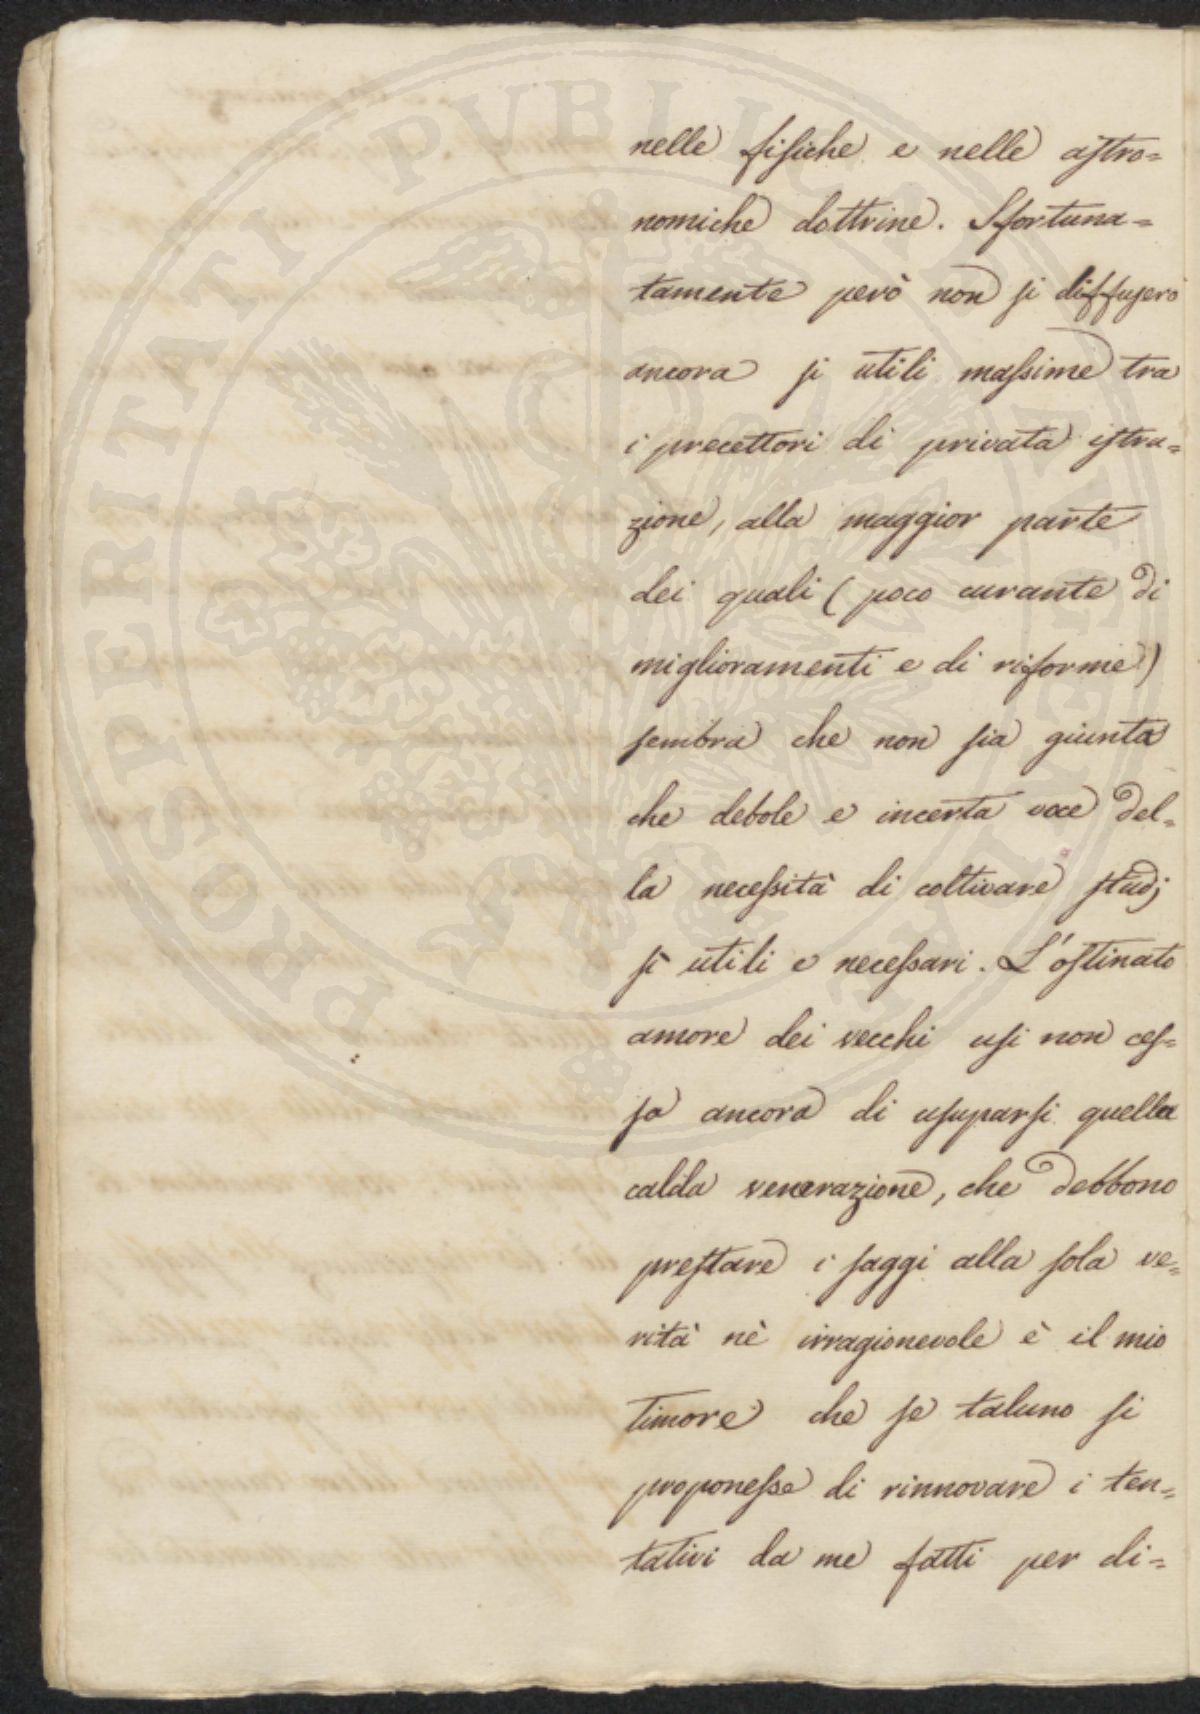 nelle fisiche e nelle astro=
nomiche dottrine. Sfortuna=
tamente però non si diffusero
ancora si utili massime tra
i precettori di privata istru=
zione, alla maggior parte
dei quali (poco curante di
miglioramenti e di riforme)
sembra che non sia giunta
che debole e incerta voce del=
la necessità di coltivare studj
sì utili e necessari. L'ostinato
amore dei vecchi usi non ces=
sa ancora di usuparsi quella
calda venerazione, che debbono
prestare i saggi alla sola ve=
rità nè irragionevole è il mio
timore che se taluno si
proponesse di rinnovare i ten=
tativi da me fatti per di=
PROSPERITATI PUBLICAE AUGENDAE